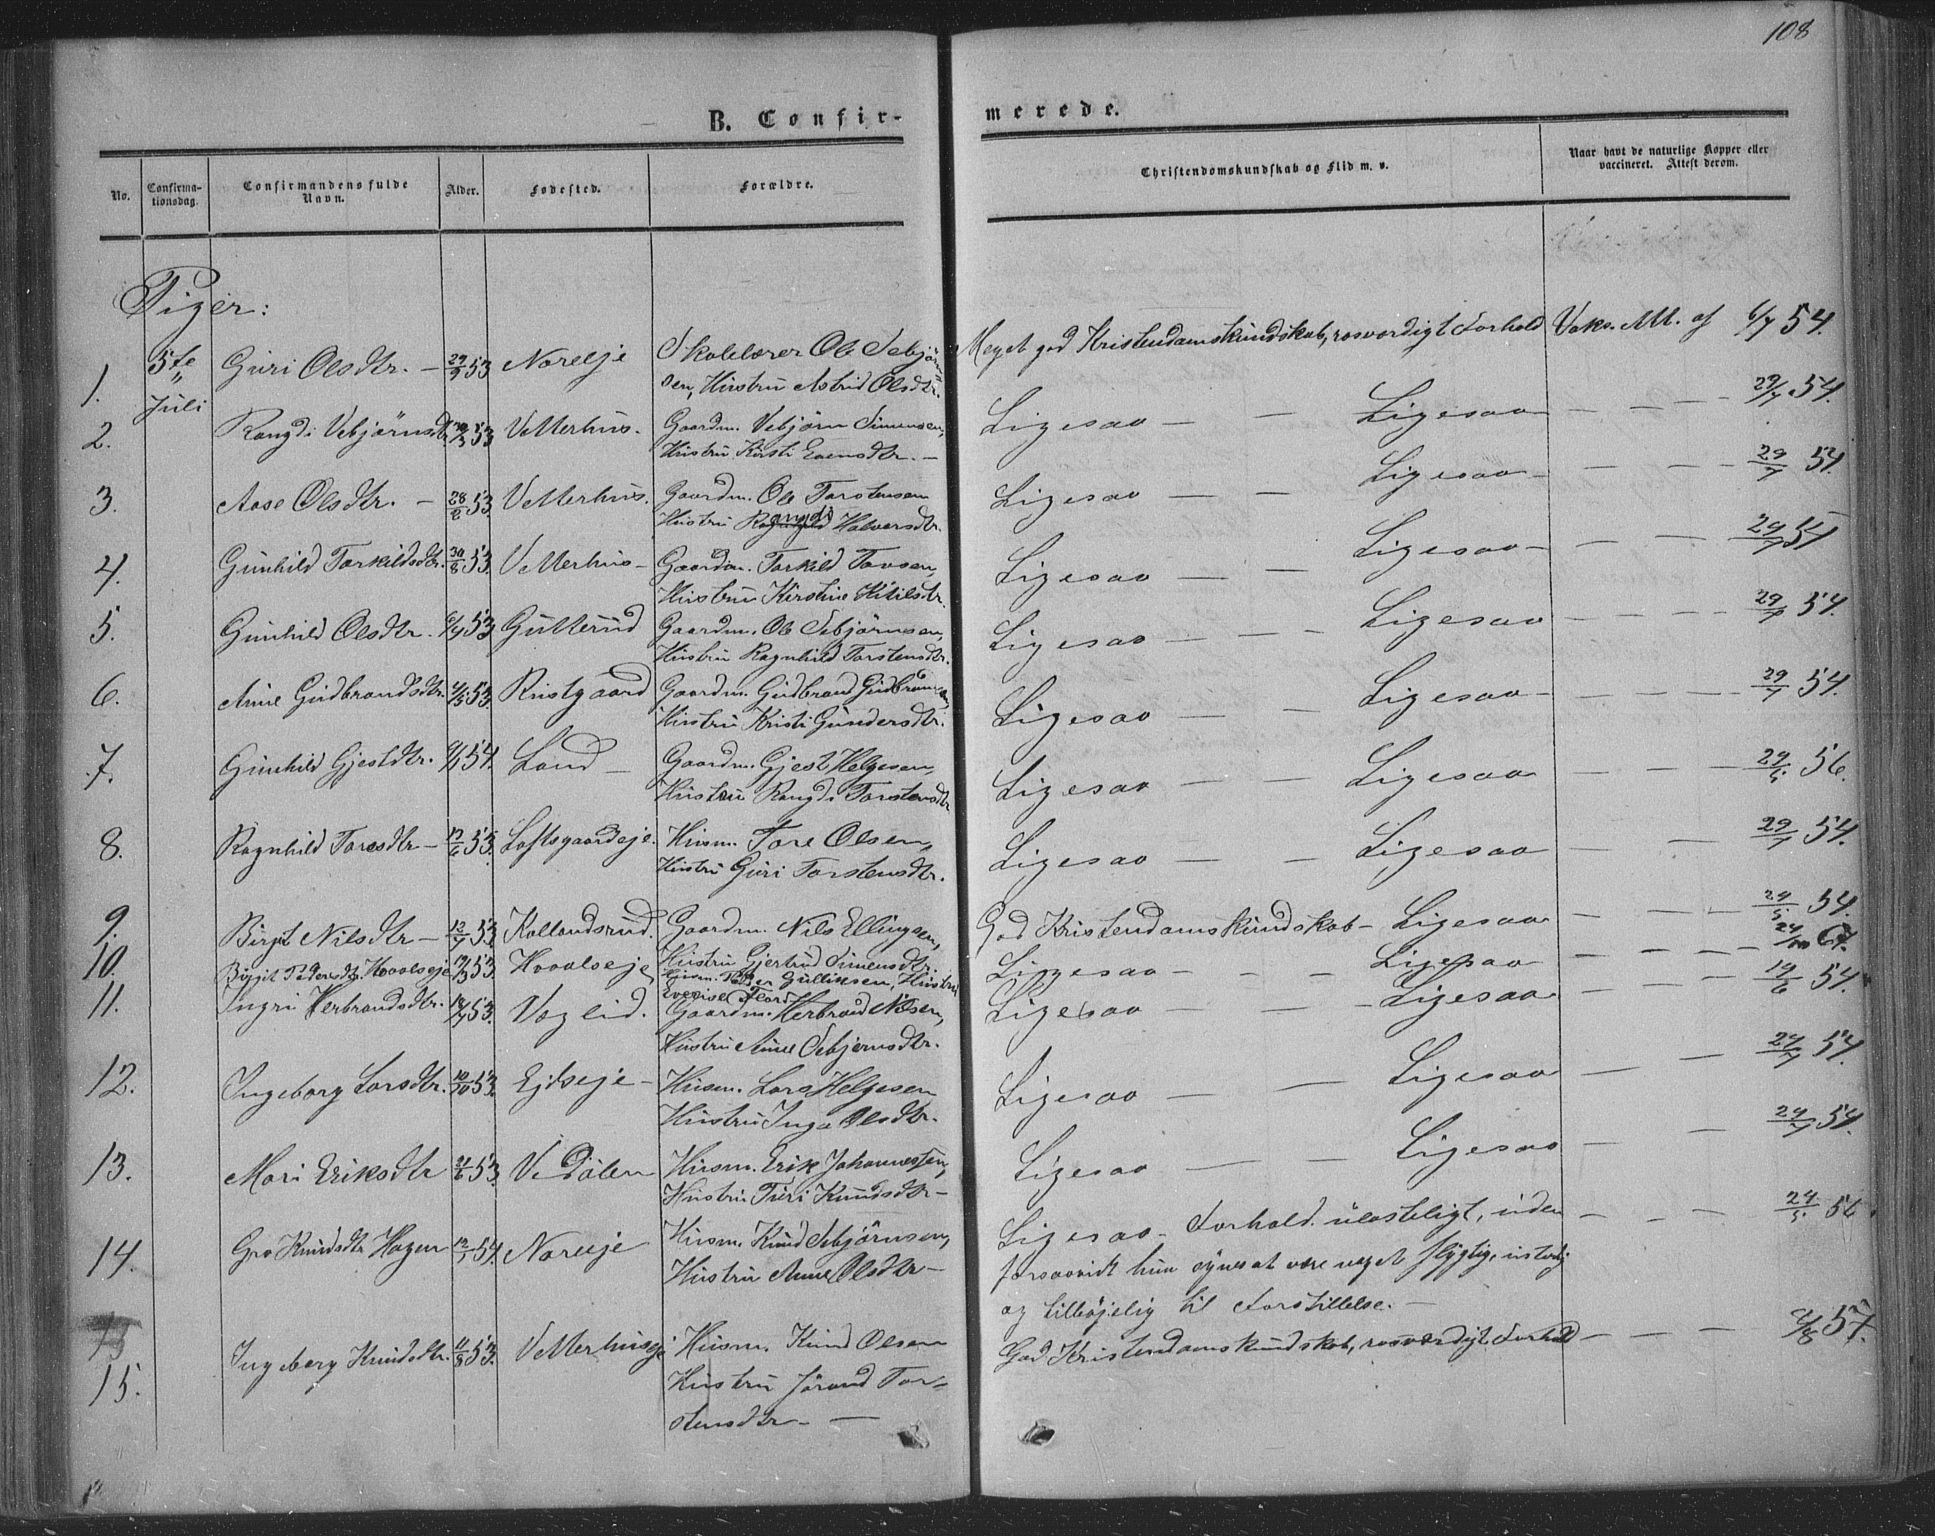 108
B. Confir-
merede.
No.
Confirma-
tionsdag.
Confirmandens fulde
Navn.
Alder.
Fødested.
Forældre.
Christendomskundskab og Flid m. v.
Naar havt de naturlige Kopper eller
vaccineret. Attest derom.
Piger:
1. 5te Juli Guri Olsdtr. — 29/9 53 Noreeje Skolelærer Ole Sebjörn-
sen, Hustru Astrid Olsdtr. Meget god Kristendomskundskab, rosværdigt Forhold Vaks. Att. af 6/7 54.
2. Rangdi Vebjörnsdtr. 53 Vetterhus. Gaardm. Vebjörn Simensen,
Hustru Kirsti Evensdtr. — Ligesaa — — Ligesaa — — — 29/7 54.
3. Aase Olsdtr. — 28/8 53. Vetterhus. Gaardm. Ole Torstensen
Hustru Rangdi Halvorsdtr. Ligesaa — — Ligesaa — — — 29/7 54.
4. Gunhild Torkildsdtr. 30/8 53. Vetterhus — Gaardm. Torkild Tovsen,
Hustru Kirstine Kittilsdtr. Ligesaa — — Ligesaa — — — 29/7 54
5. Gunhild Olsdtr. 53 Gutterud Gaardm. Ole Sebjörnsen,
Hustru Ragnhild Torstensdtr. Ligesaa — — Ligesaa — — — 29/7 54.
6. Anne Gudbrandsdtr. 53. Ristgaard Gaardm. Gudbrand Gudbrandsen,
Hustru Kristi Gundersdtr. Ligesaa — — Ligesaa — — — 29/7 54.
7. Gunhild Gjestdtr. 54. Land — Gaardm. Gjest Helgesen,
Hustru Rangdi Torstensdtr Ligesaa — — Ligesaa — — — 56.
8. Ragnhild Toresdtr — 53. Loftsgaardeje. Husm. Tore Olsen,
Hustru Guri Torstensdtr. Ligesaa — — Ligesaa — — 29/7 54.
9. Birgit Nilsdtr — 12/7 53 Kollandsrud. Gaardm. Nils Ellingsen,
Hustru Gjertrud Simensdtr. God Kristendomskundskab — Ligesaa — — — 24/5 54.
10. Birgit Pedersdtr. Hvoalseje 53 Hvoalseje Husm. Peder Gulliksen, Hustru
Ligesaa — — — Ligesaa — — —
11. Ingri Herbrandsdtr. 53. Vaglid. Gaardm. Herbrand Nilsen,
Hustru Anne Sebjörnsdtr. Ligesaa — — Ligesaa — — — 19/6 54.
12. Ingeborg Larsdtr. 10/10 53. Ejdseje — Husm. Lars Helgesen
Hustru Inga Olsdtr. Ligesaa — — Ligesaa — — 54.
13. Mari Eriksdtr 53. Ve Dölen Husm. Erik Johannessen,
Hustru Turi Knudsdtr — Ligesaa — — Ligesaa — — 54.
14. Gro Knudsdtr Hagen 54. Noreeje Husm. Knud Sebjörnsen,
Hustru Anne Olsdtr — Ligesaa — Forhold ulasteligt, uden — — — 24/5 56
forsaavidt hun synes at være meget flygtig, ustadig
og tilböjelig til Forstillelse. —
15
15. Ingeborg Knudsdtr. 11/8 53. Vetterhuseje Husm. Knud Olsen
Hustru Jörand Tor-
stensdtr — — God Kristendomskundskab, rosværdigt Forhold — — — 57.